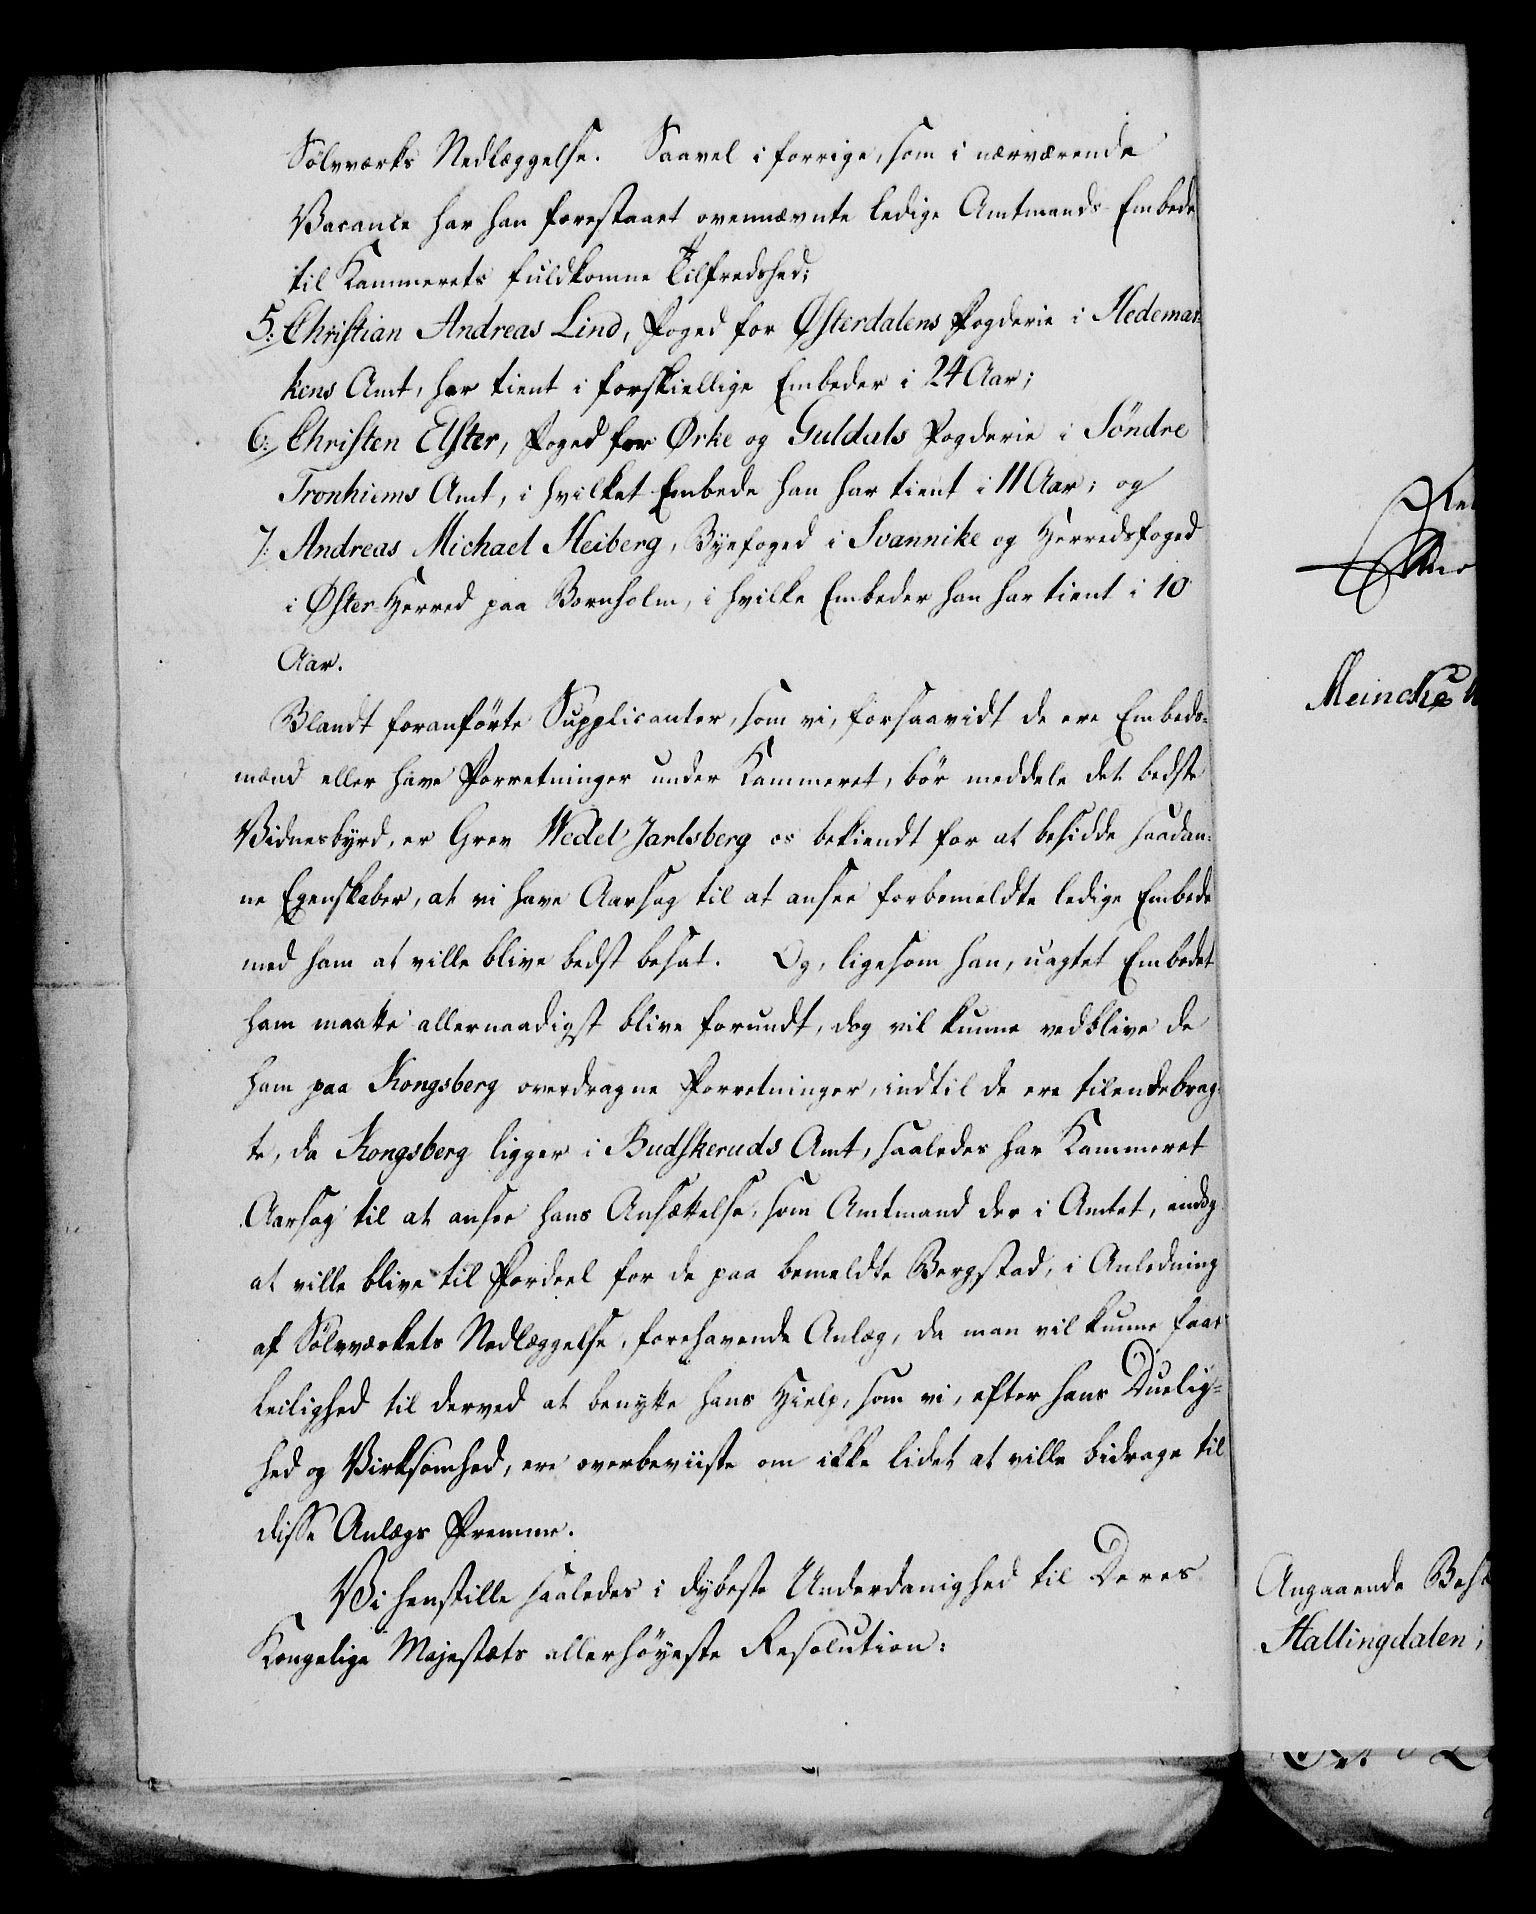 Sølvværks Nedlæggelse. Saavel i forrige, som i nærværende
Vacance har han forestaaet ovennævnte ledige Amtmands-Embede
til Kammerets fuldkomne Tilfredshed;
5. Christian Andreas Lind, Foged for Østerdalens Fogderie i Hedemar-
kens Amt, har tient i forskiellige Embeder i 24 Aar;
6. Christen Elster, Foged for Ørke og Guldals Fogderie i Söndre
Tronhiems Amt, i hvilket Embede han har tient i 11 Aar; og
7. Andreas Michael Heiberg, Byefoged i Svannike og Herredsfoged
i Øster-Herred paa Bornholm, i hvilke Embeder han har tient i 10
Aar.
Blandt foranförte Supplicanter, som vi, forsaavidt de ere Embeds-
mænd eller have Forretninger under Kammeret, bör meddele det bedste
Vidnesbyrd, er Grev Wedel Jarlsberg os bekiendt for at besidde saadan-
ne Egenskaber, at vi have Aarsag til at ansee forbemeldte ledige Embede
med ham at ville blive bedst besat. Og, ligesom han, uagtet Embedet
ham maatte allernaadigst blive forundt, dog vil kunne vedblive de
ham paa Kongsberg overdragne Forretninger, indtil de ere tilendebrag-
te, da Kongsberg ligger i Budskeruds Amt, saaledes har Kammeret
Aarsag til at ansee hans Ansættelse, som Amtmand der i Amtet, endog
at ville blive til Fordeel for de paa bemeldte Bergstad, i Anledning
af Sölvværkets Nedlæggelse, forehavende Anlæg, da man vil kunne faae
Leilighed til derved at benytte hans Hielp, som vi, efter hans Duelig-
hed og Virksomhed, ere overbeviiste om ikke lidet at ville bidrage til
disse Anlægs Fremme.
Vi henstille saaledes i dybeste Underdanighed til Deres
Kongelige Majestæts allerhöyeste Resolution:
Meincke
Angaaende
Hallingdalen i